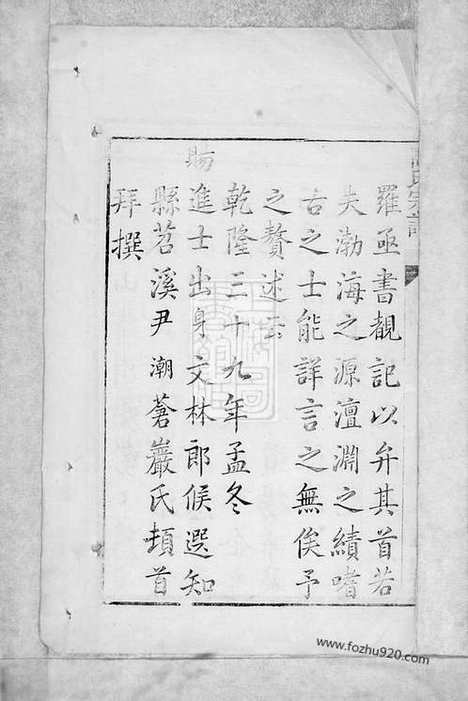 氏宗譜
羅亟書覩記以弁其首若
夫渤海之源澶淵之績嗜
古之士能詳言之無俟予
之贅述云
乾隆三十九年孟冬
賜進士出身文林郎候選知
縣苕溪尹潮蒼巖氏頓首
拜撰
www.fozhu920.com